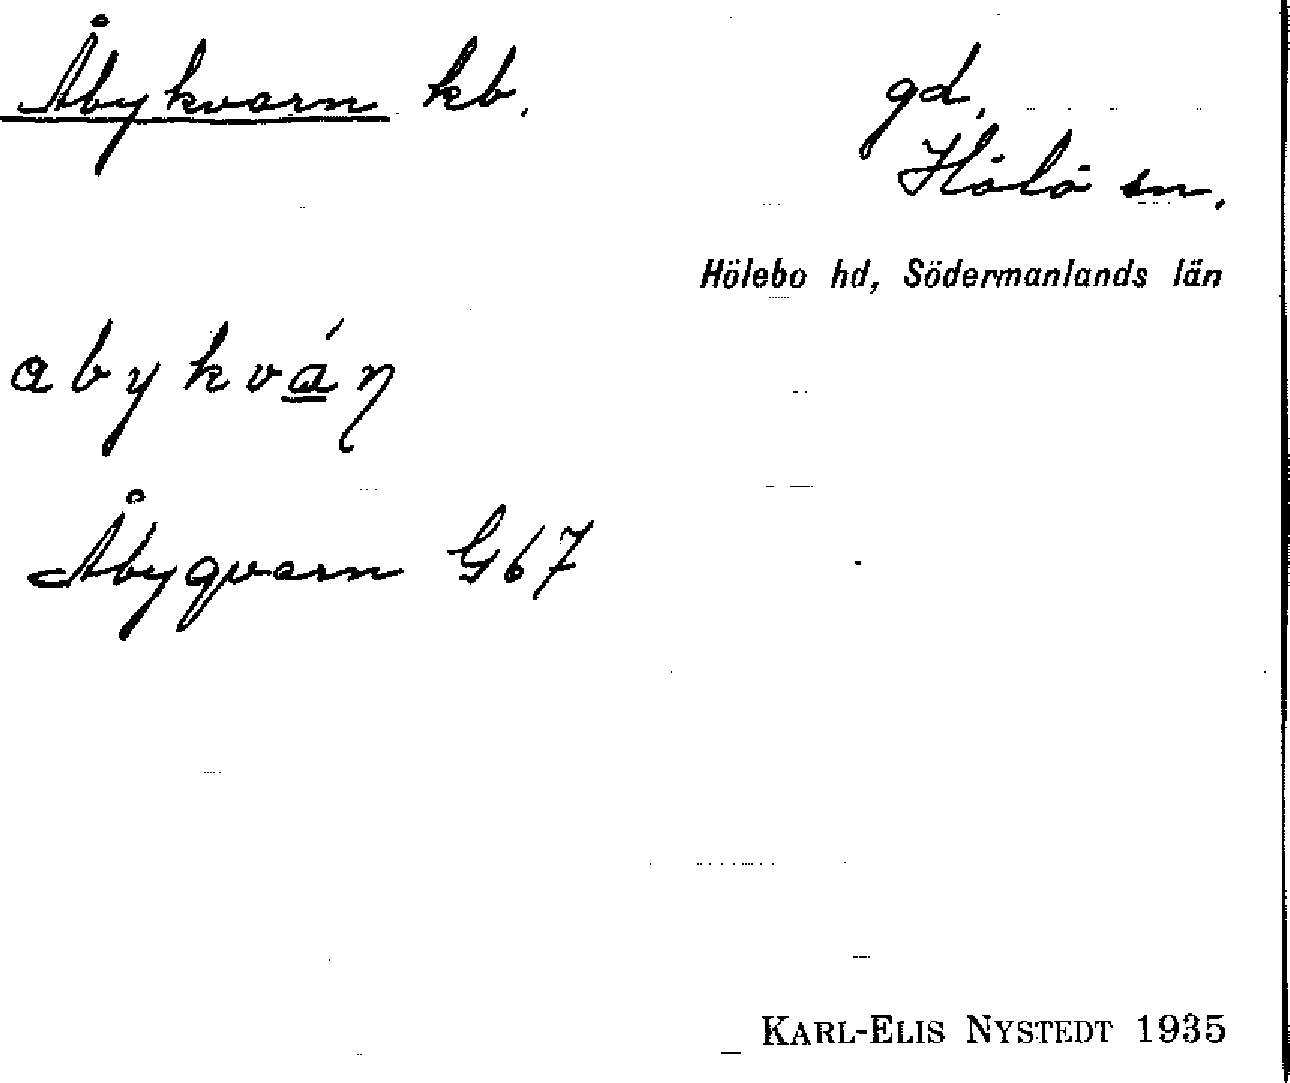 Åbykvarn kb.
gd.
Hölö sn.
Hölebo hd, Södermanlands län
abykvá̲ŋ
Åbyqvarn G67
KARL-ELIS NYSTEDT 1935